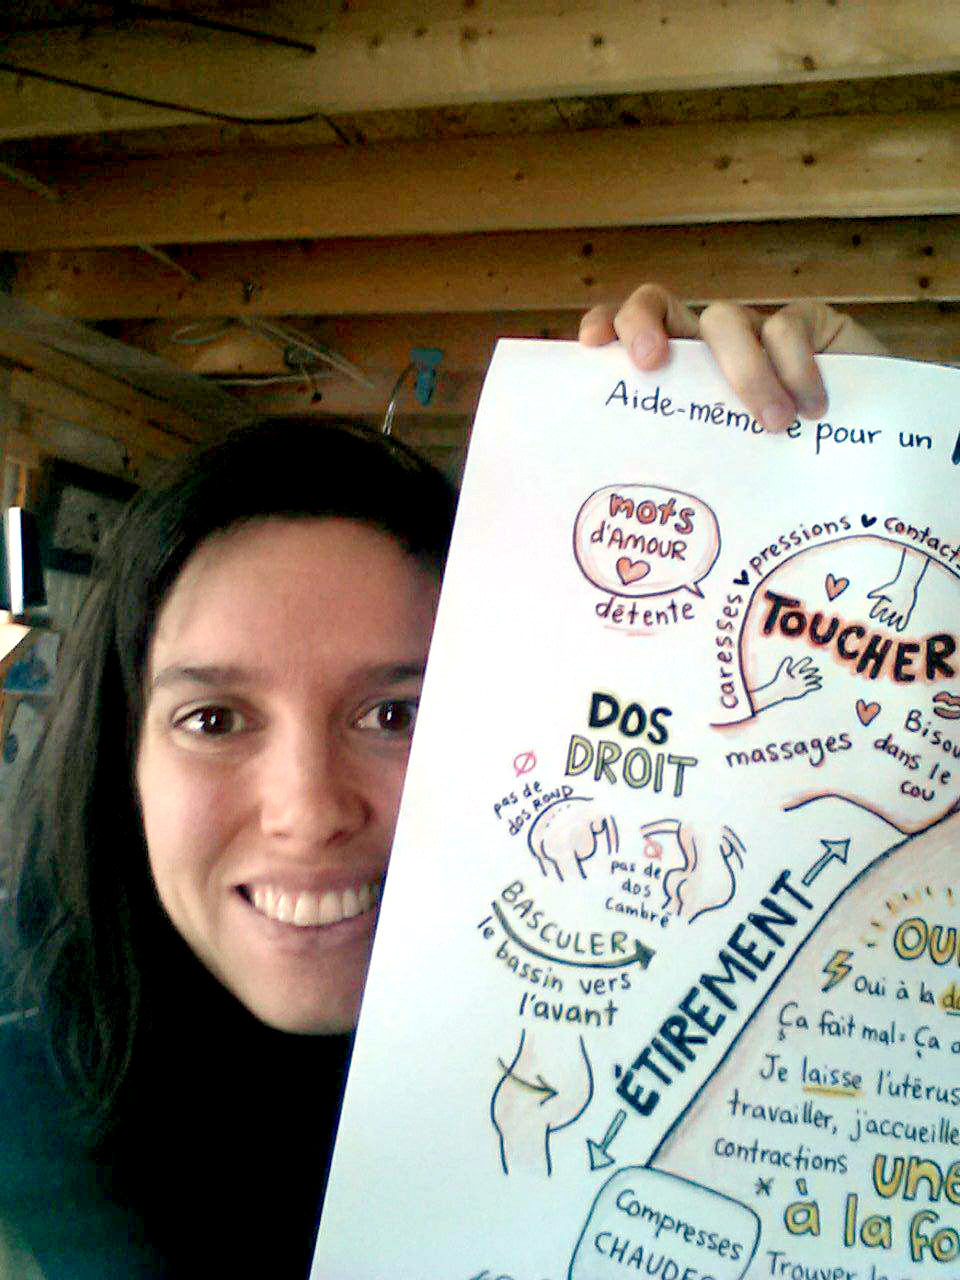 Aide-mémoire pour un
mots
d'AMOUR
détente
caresses ♥ pressions ♥ contact
TOUCHER
Bisou
dans le
cou
massages
DOS
DROIT
pas de
dos ROND
pas de
dos
cambré
BASCULER
le bassin vers
l'avant
ÉTIREMENT
OUI
Oui à la
Ça fait mal = Ça
Je laisse l'utérus
travailler, j'accueille
contractions
une
à la fo
Compresses
CHAUDES
Trouver